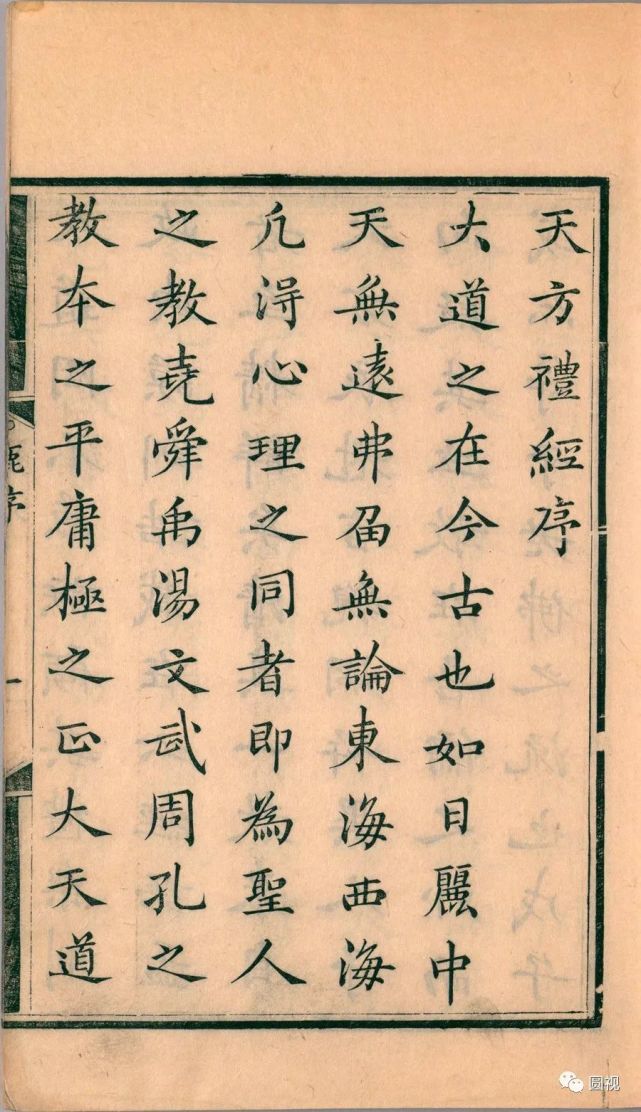 天方禮經序
大道之在今古也如日麗中
天無遠弗屆無論東海西海
凡得心理之同者即為聖人
之教堯舜禹湯文武周孔之
教本之平庸極之正大天道
鹿序
一
圆视